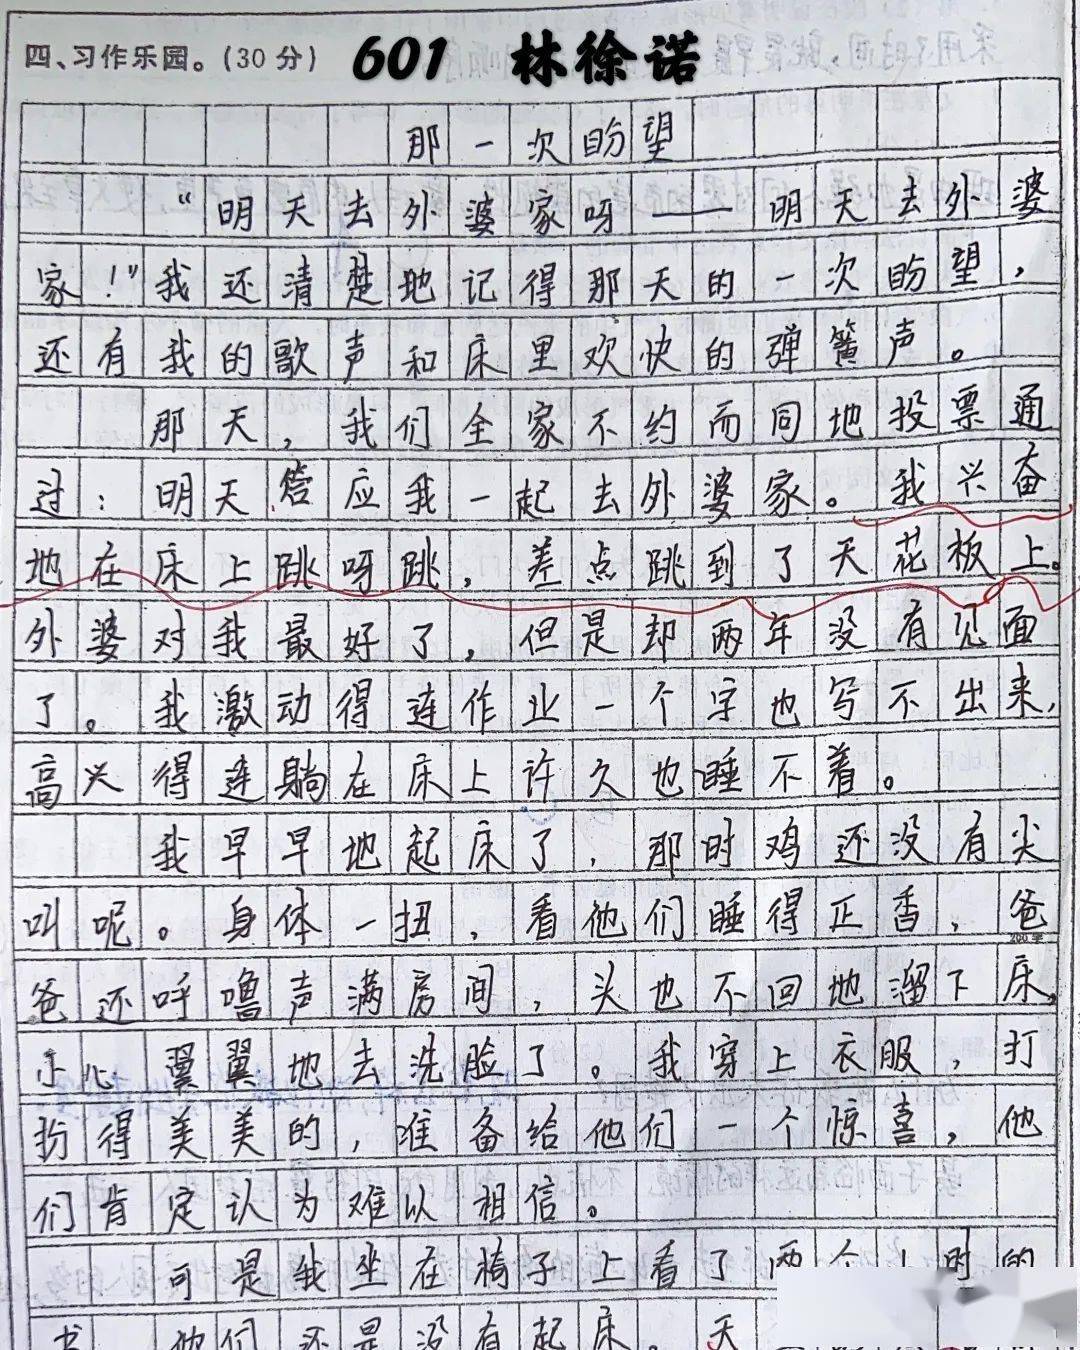 四、习作乐园。(30分) 601 林徐诺
那一次盼望
“明天去外婆家呀——明天去外婆
家!”我还清楚地记得那天的一次盼望,
还有我的歌声和床里欢快的弹簧声。
那天,我们全家不约而同地投票通
过:明天答应我一起去外婆家。我兴奋
地在床上跳呀跳,差点跳到了天花板上。
外婆对我最好了,但是却两年没有见面
了。我激动得连作业一个字也写不出来,
高兴得连躺在床上许久也睡不着。
我早早地起床了,那时鸡还没有尖
叫呢。身体一扭,看他们睡得正香,爸
爸还呼噜声满房间,头也不回地溜下床,
小心翼翼地去洗脸了。我穿上衣服,打
扮得美美的,准备给他们一个惊喜,他
们肯定认为难以相信。
可是我坐在椅子上看了两个小时的
书,他们还是没有起床。天